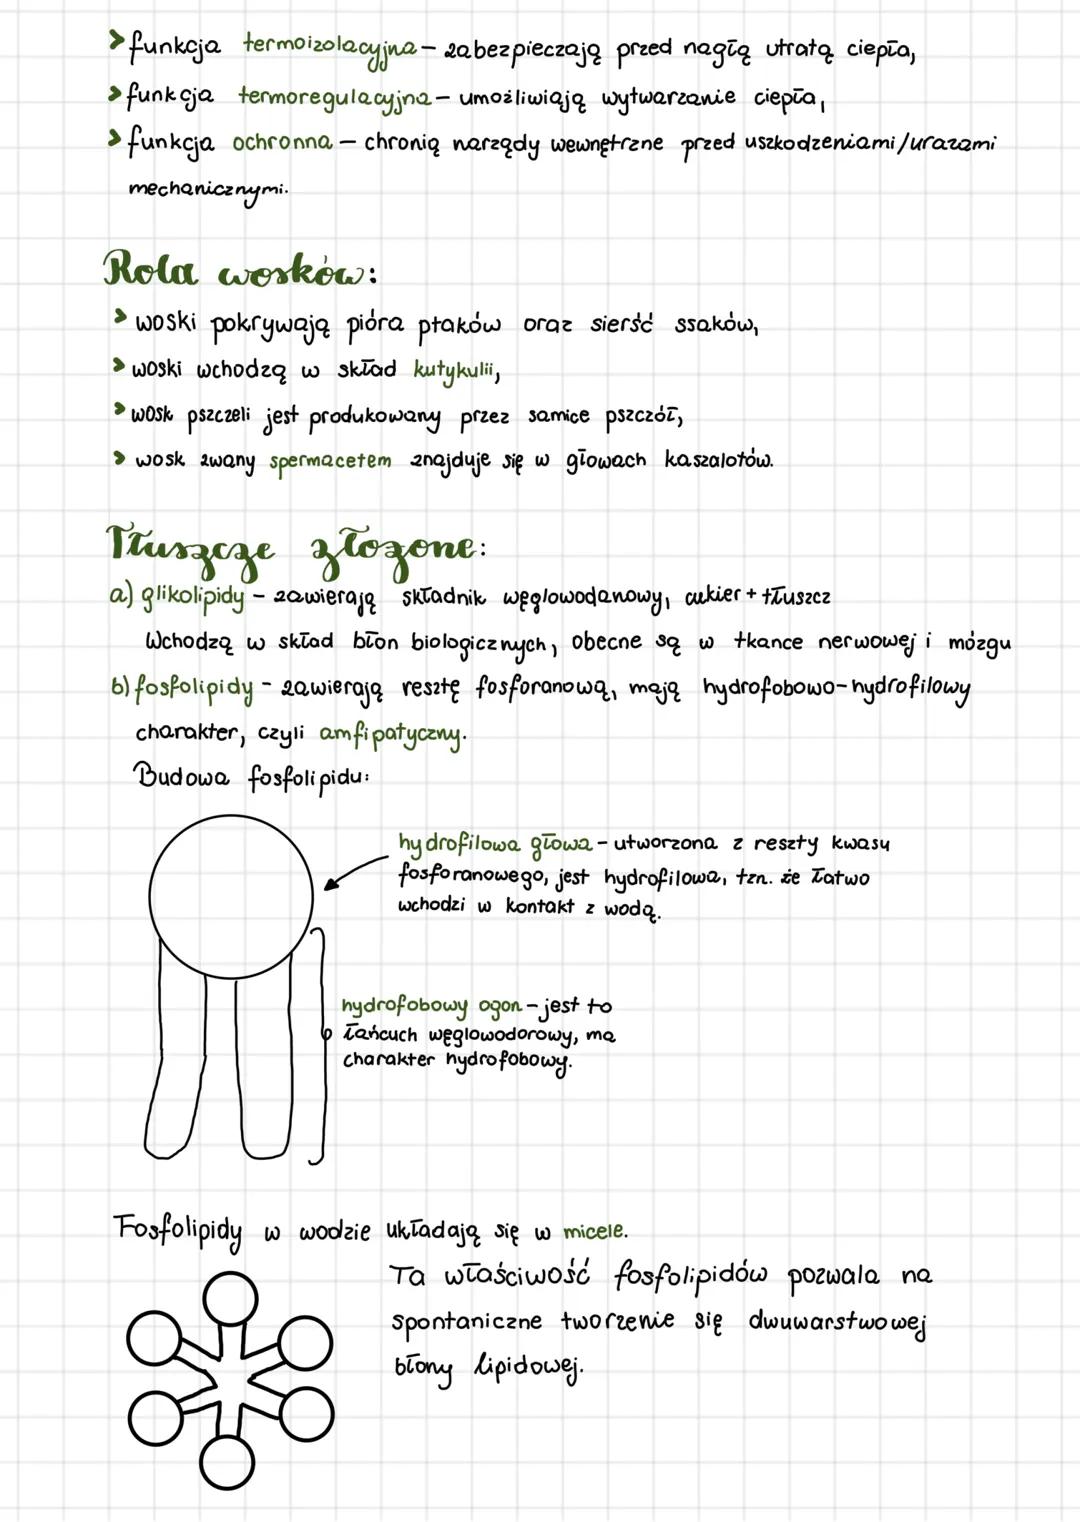 > funkcja termoizolacyjna – zabezpieczają przed nagłą utratą ciepła,
> funkcja termoregulacyjna – umożliwiają wytwarzanie ciepła,
> funkcja ochronna – chronią narządy wewnętrzne przed uszkodzeniami/urazami
mechanicznymi.
Rola wosków:
> woski pokrywają pióra ptaków oraz sierść ssaków,
> woski wchodzą w skład kutykulii,
> wosk pszczeli jest produkowany przez samice pszczół,
> wosk zwany spermacetem znajduje się w głowach kaszalotów.
Tłuszcze złożone:
a) glikolipidy – zawierają składnik węglowodanowy, cukier + tłuszcz
Wchodzą w skład błon biologicznych, obecne są w tkance nerwowej i mózgu
b) fosfolipidy – zawierają resztę fosforanową, mają hydrofobowo-hydrofilowy
charakter, czyli amfipatyczny.
Budowa fosfolipidu:
hydrofilowa głowa – utworzona z reszty kwasu
fosforanowego, jest hydrofilowa, tzn. że łatwo
wchodzi w kontakt z wodą.
hydrofobowy ogon – jest to
łańcuch węglowodorowy, ma
charakter hydrofobowy.
Fosfolipidy w wodzie układają się w micele.
Ta właściwość fosfolipidów pozwala na
spontaniczne tworzenie się dwuwarstwowej
błony lipidowej.